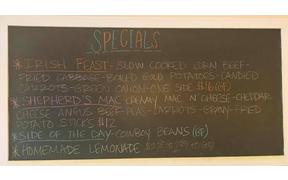 SPECIALS
* IRISH FEAST - SLOW COOKED CORN BEEF-
FRIED CABBAGE - BOILED GOLD POTATOES - CANDIED
CARROTS - GREEN ONION - ONE SIDE $16 (GF)
* SHEPHERD'S MAC CREAMY MAC N' CHEESE - CHEDDAR
CHEESE ANGUS BEEF - PEAS - CARROTS - GRAVY - FRIED
POTATO STICKS $12
* SIDE OF THE DAY - COWBOY BEANS (GF)
* HOMEMADE LEMONADE